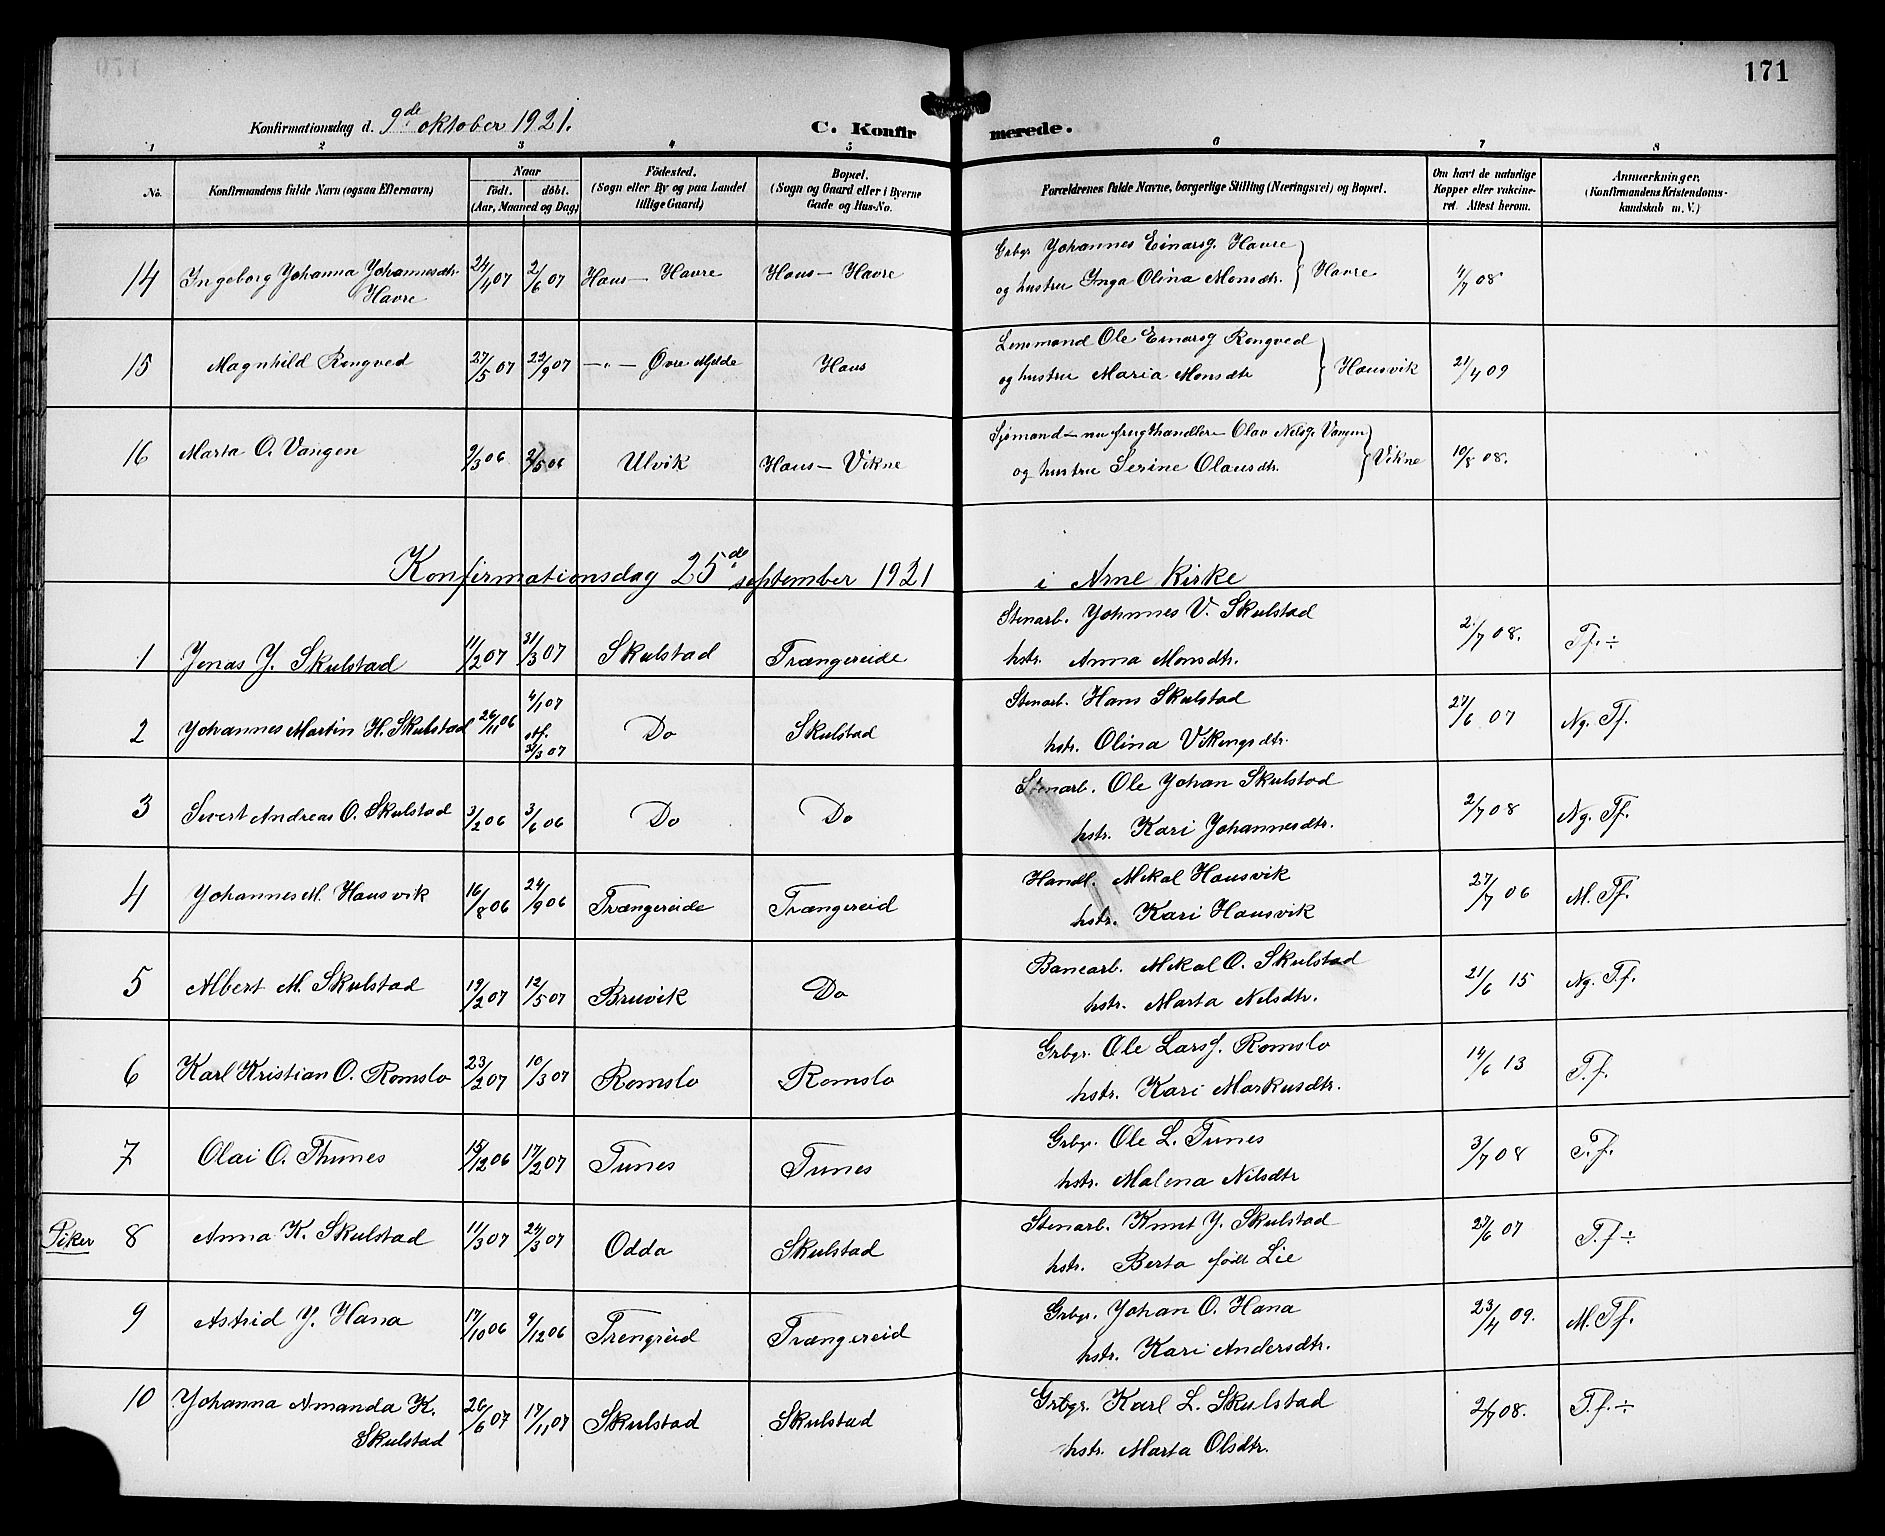 171
Konfirmationsdag d. 9de oktober 1921.
C. Konfirmerede.
1 2 3 4 5 6 7 8
No.
Konfirmandens fulde Navn (ogsaa Efternavn)
Naar
födt. döbt.
(Aar, Maaned og Dag)
Födested.
(Sogn eller By og paa Landet
tillige Gaard)
Bopæl.
(Sogn og Gaard eller i Byerne
Gade og Hus-No.
Forældrenes fulde Navne, borgerlige Stilling (Næringsvei) og Bopæl.
Om havt de naturlige
Kopper eller vakcine-
ret. Attest herom.
Anmærkninger.
(Konfirmandens Kristendoms-
kundskab m. V.)
14 Ingeborg Johanna Johannesdtr. 24/4 07 2/6 07 Haus – Havre Haus – Havre Grbgr. Johannes Einarsg. Havre
Havre og hustru Inga Olina Monsdtr. } Havre 4/7 08
15 Magnhild Rongved 27/5 07 22/9 07 –„– Øvre Mjelde Haus Lensmand Ole Einarsg Rongved
og hustru Maria Monsdtr } Hausvik 21/4 09
16 Marta O. Vangen 9/3 06 2/5 06 Ulvik Haus – Vikne Sjømand – nu frugthandler – Olav Nilsg. Vangen
og hustru Serine Olausdtr. } Vikne 10/8 08.
Konfirmationsdag 25de september 1921 i Arne Kirke
1 Jonas J. Skulstad 11/2 07 31/3 07 Skulstad Trængereide Stenarb. Johannes V. Skulstad
hstr. Anna Monsdtr. 2/7 08. Tf. ÷
2 Johannes Martin H. Skulstad 26/11 06 4/1 07 stf. 31/3 07 Do Skulstad Stenarb. Hans Skulstad
hstr. Olina Vikingsdtr. 27/6 07 Ng. Tf.
3 Sivert Andreas O. Skulstad 3/2 06 3/6 06 Do Do Stenarb. Ole Johan Skulstad
hstr. Kari Johannesdtr. 2/7 08 Ng. Tf.
4 Johannes M. Hausvik 16/8 06 24/9 06 Trængereide Trængereid Handl. Mikal Hausvik
hstr. Kari Hausvik 27/7 06 M. Tf.
5 Albert M. Skulstad 19/2 07 12/5 07 Bruvik Do Banearb. Mikal O. Skulstad
hstr. Marta Nilsdtr. 21/6 15 Ng. T.f.
6 Karl Kristian O. Romslo 23/2 07 10/3 07 Romslo Romslo Grbgr. Ole Larsg. Romslo
hstr. Kari Markusdtr. 14/6 13 T.f.
7 Olai O. Thunes 15/12 06 17/2 07 Tunes Tunes Grbgr. Ole L. Tunes
hstr. Malena Nilsdtr 3/7 08 T.f.
Piker 8 Anna K. Skulstad 11/3 07 24/3 07 Odda Skulstad Stenarb. Knut J. Skulstad
hstr. Berta født Lie 27/6 07 T.f ÷
9 Astrid J. Hana 17/10 06 9/12 06 Trengreid Trængereid Grbgr. Johan O. Hana
hstr. Kari Andersdtr. 23/4 09. M. Tf.
10 Johanna Amanda K. 26/6 07 17/11 07 Skulstad Skulstad Grbgr. Karl L. Skulstad
Skulstad hstr. Marta Olsdtr. 2/7 08. T.f. ÷